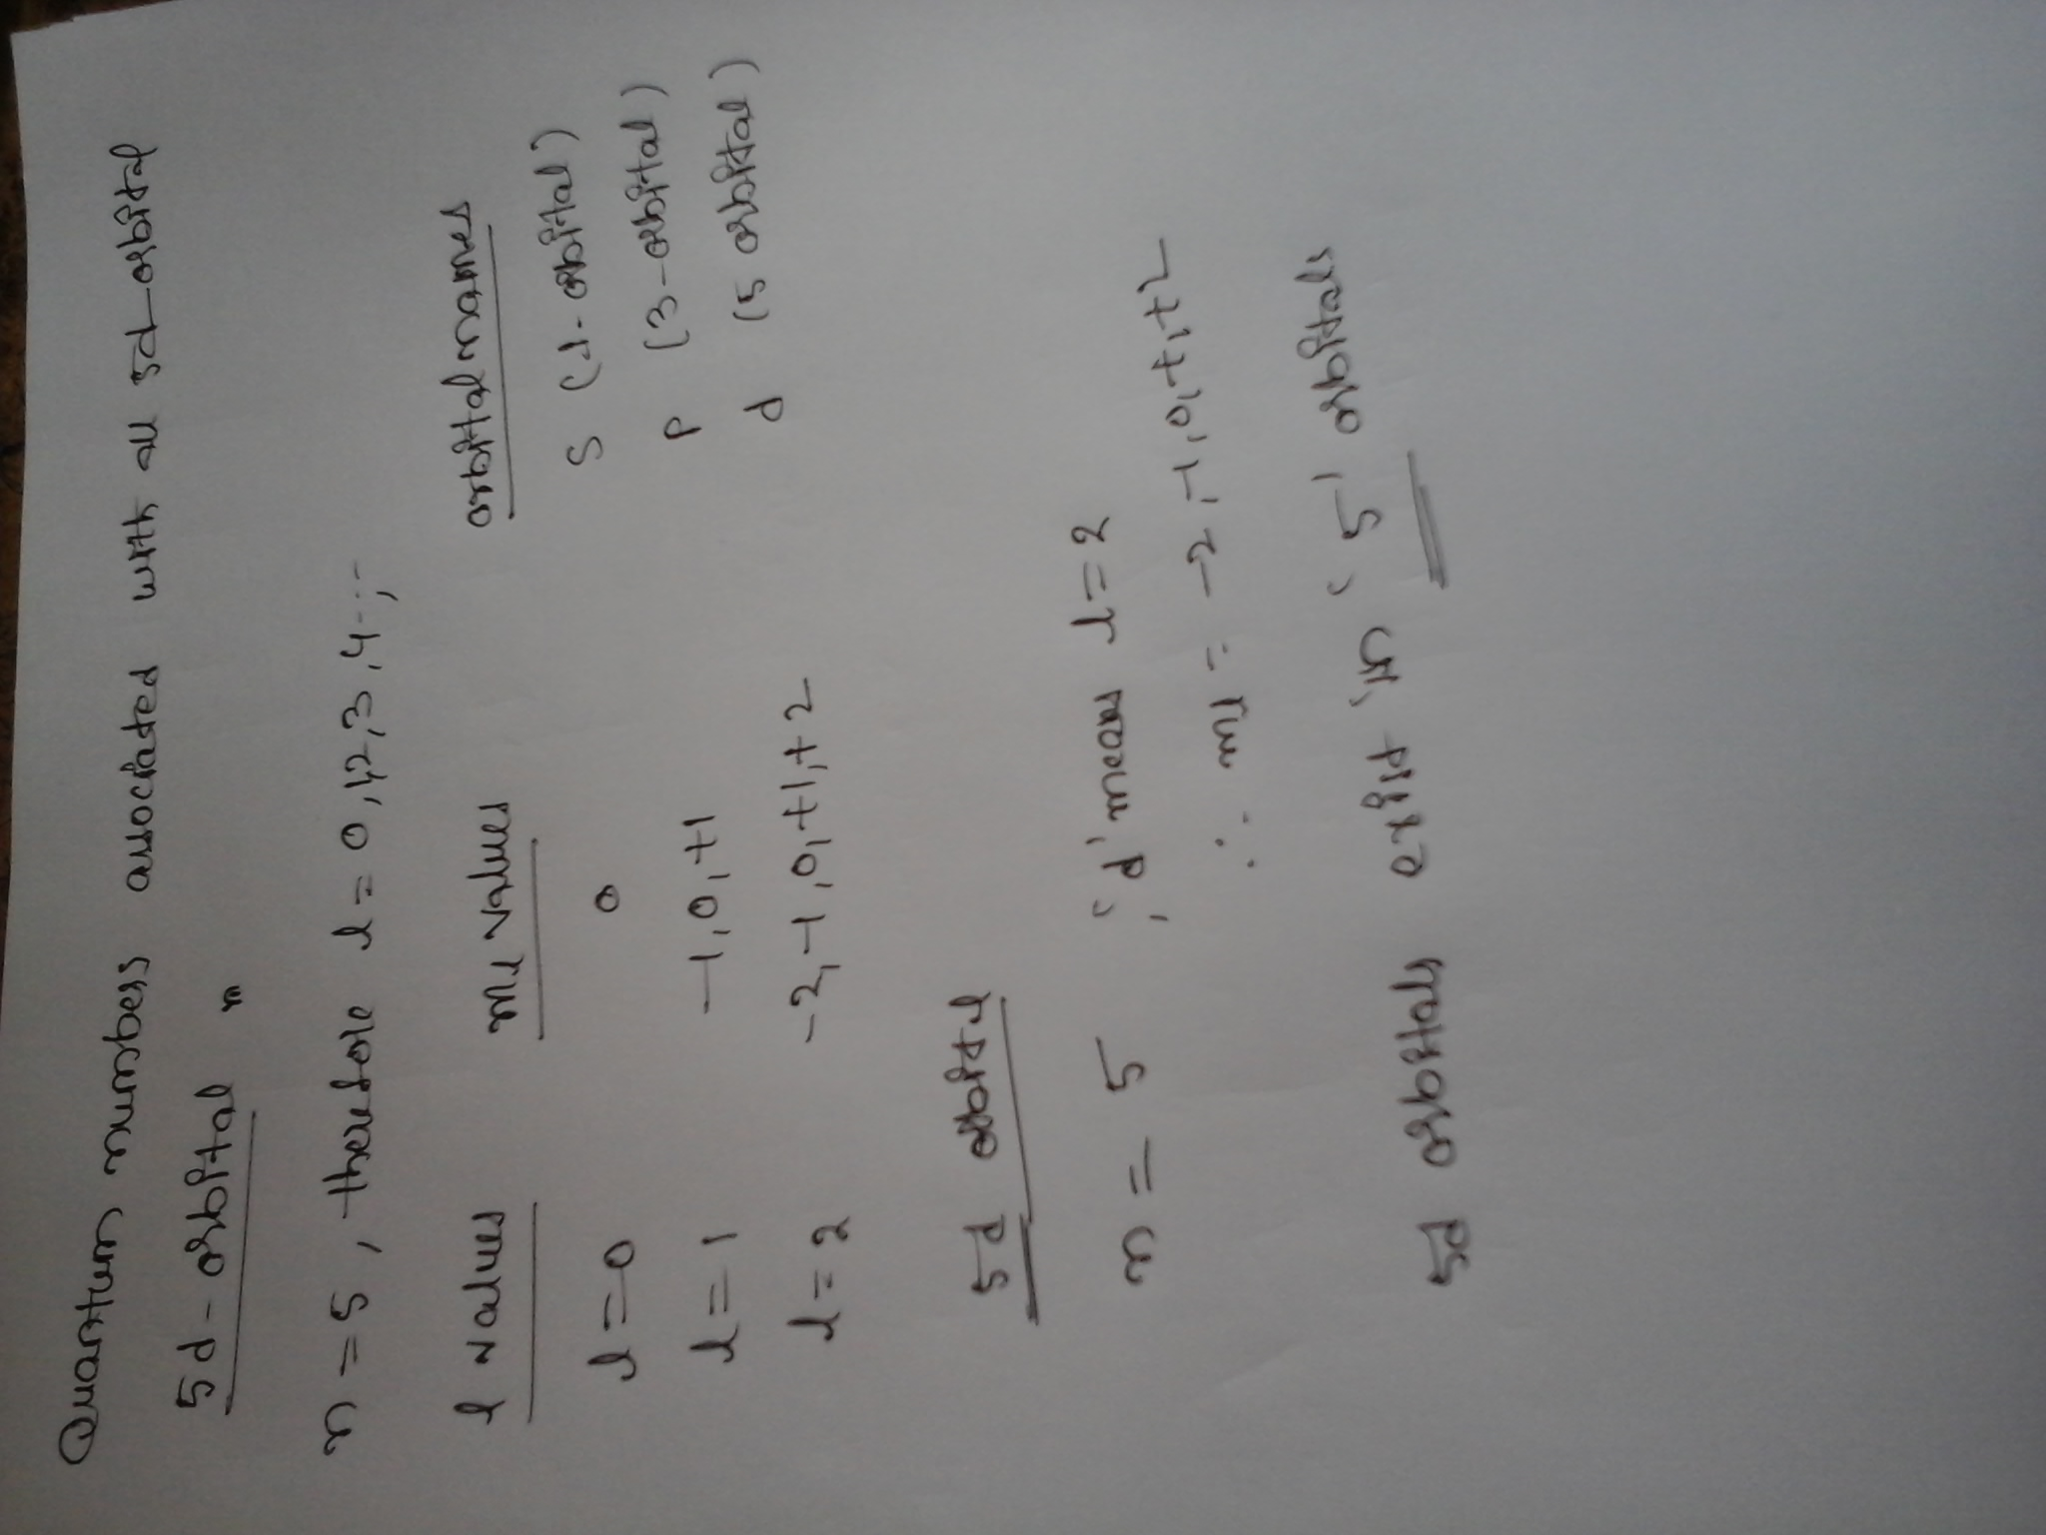 Quantum numbers associated with all 5d-orbital
5d-orbital n
n = 5, therefore l = 0,1,2,3,4...,
l values ml values orbital names
l=0 0 s (1-orbital)
l=1 -1,0,+1 p (3-orbital)
l=2 -2,-1,0,+1,+2 d (5 orbital)
5d orbital
n = 5, 'd' means l=2
∴ ml = -2,-1,0,+1,+2
5d orbitals exist in '5' orbitals